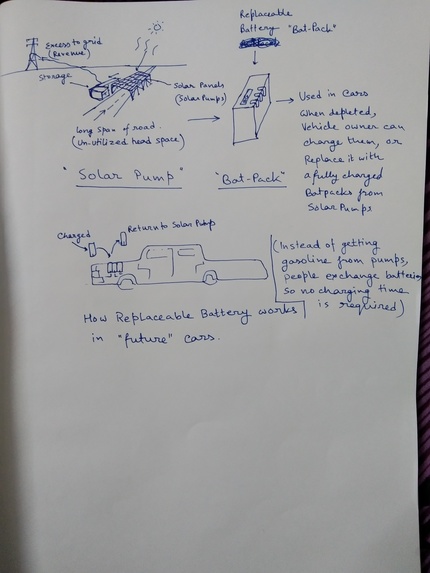 Replaceable
Battery "Bat-Pack"
Excess to grid
(Revenue)
Storage
Solar Panels
(Solar Pumps)
long span of road.
(Un-utilized head space)
"Solar Pump"
"Bat-Pack"
Used in Cars
When depleted,
Vehicle owner can
charge them, or
Replace it with
a fully charged
Batpacks from
Solar Pumps
Charged
Return to Solar Pump
(Instead of getting
gasoline from pumps,
people exchange batteries
so no charging time
is required)
How Replaceable Battery works
in "future" cars.